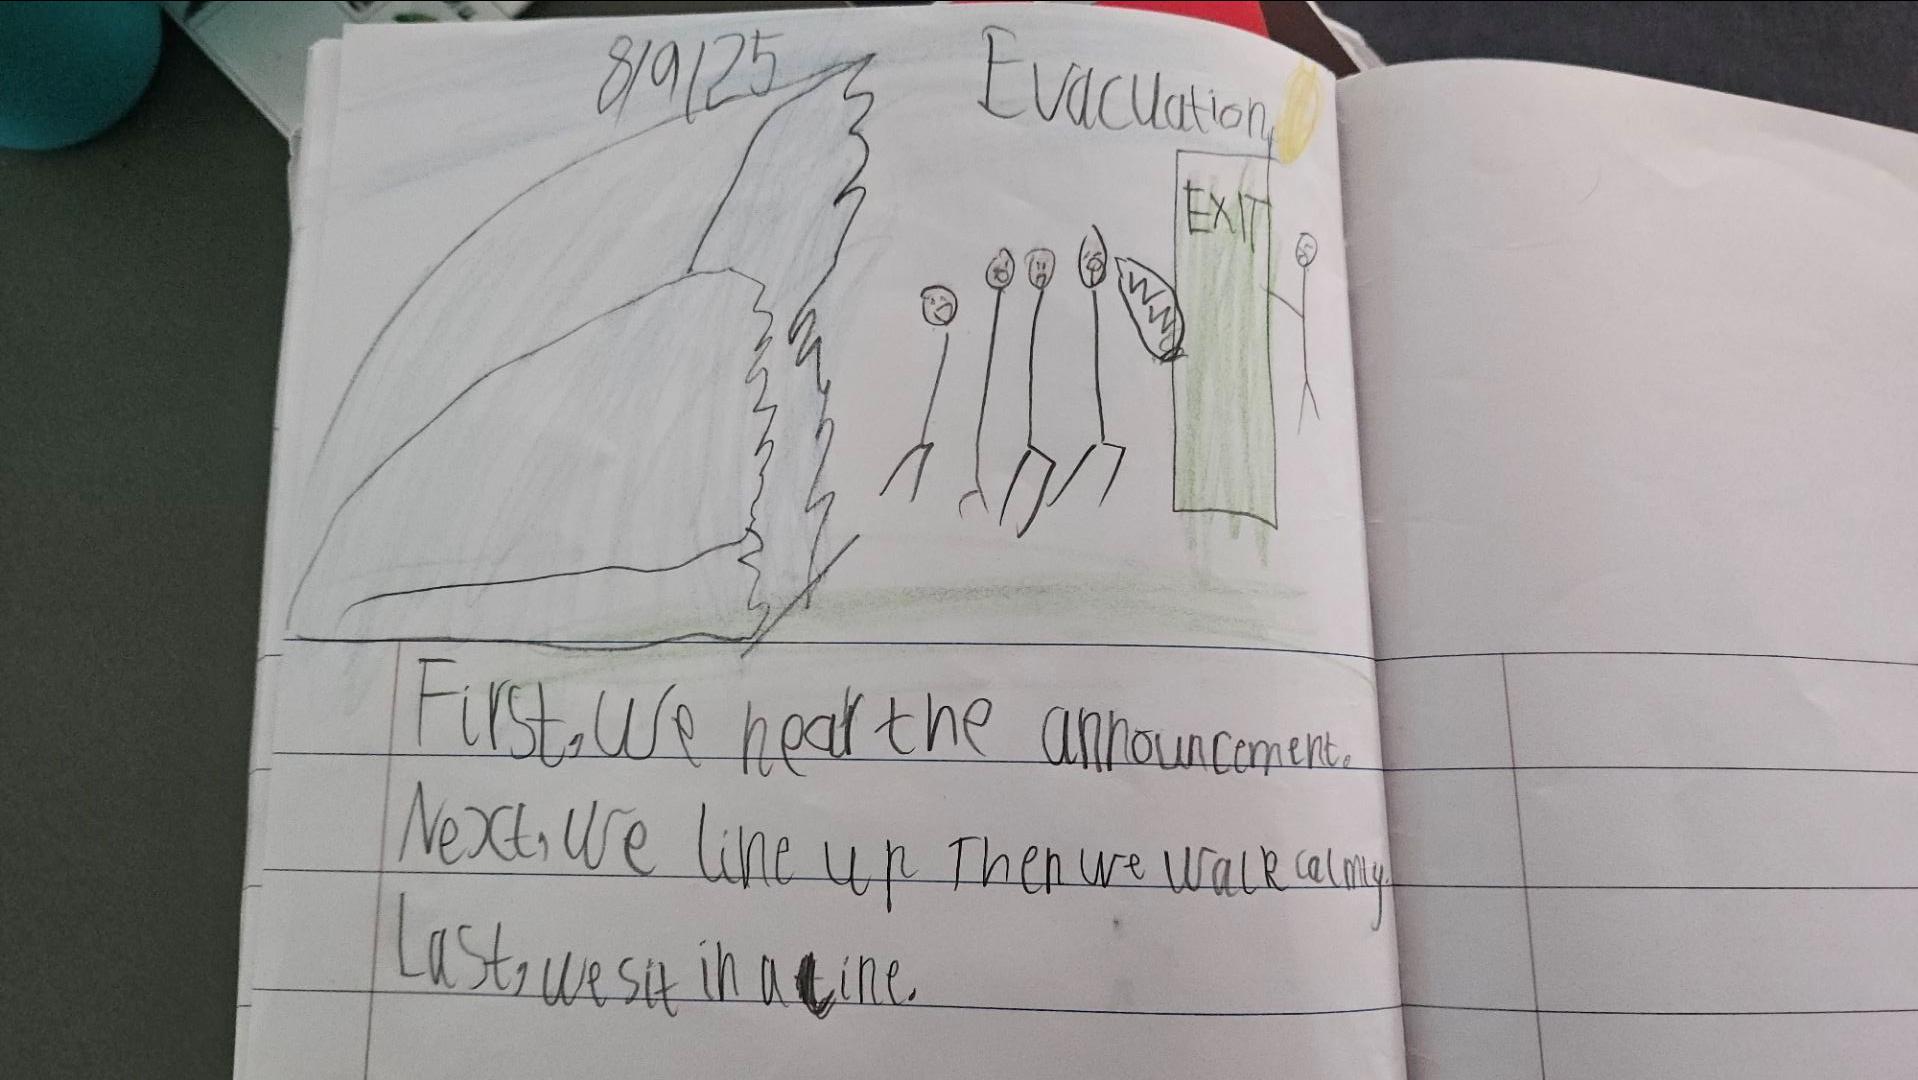 8/9/25
Evacuation
EXIT
First, we hear the announcement.
Next, we line up Then we walk calmly.
Last, we sit in a line.